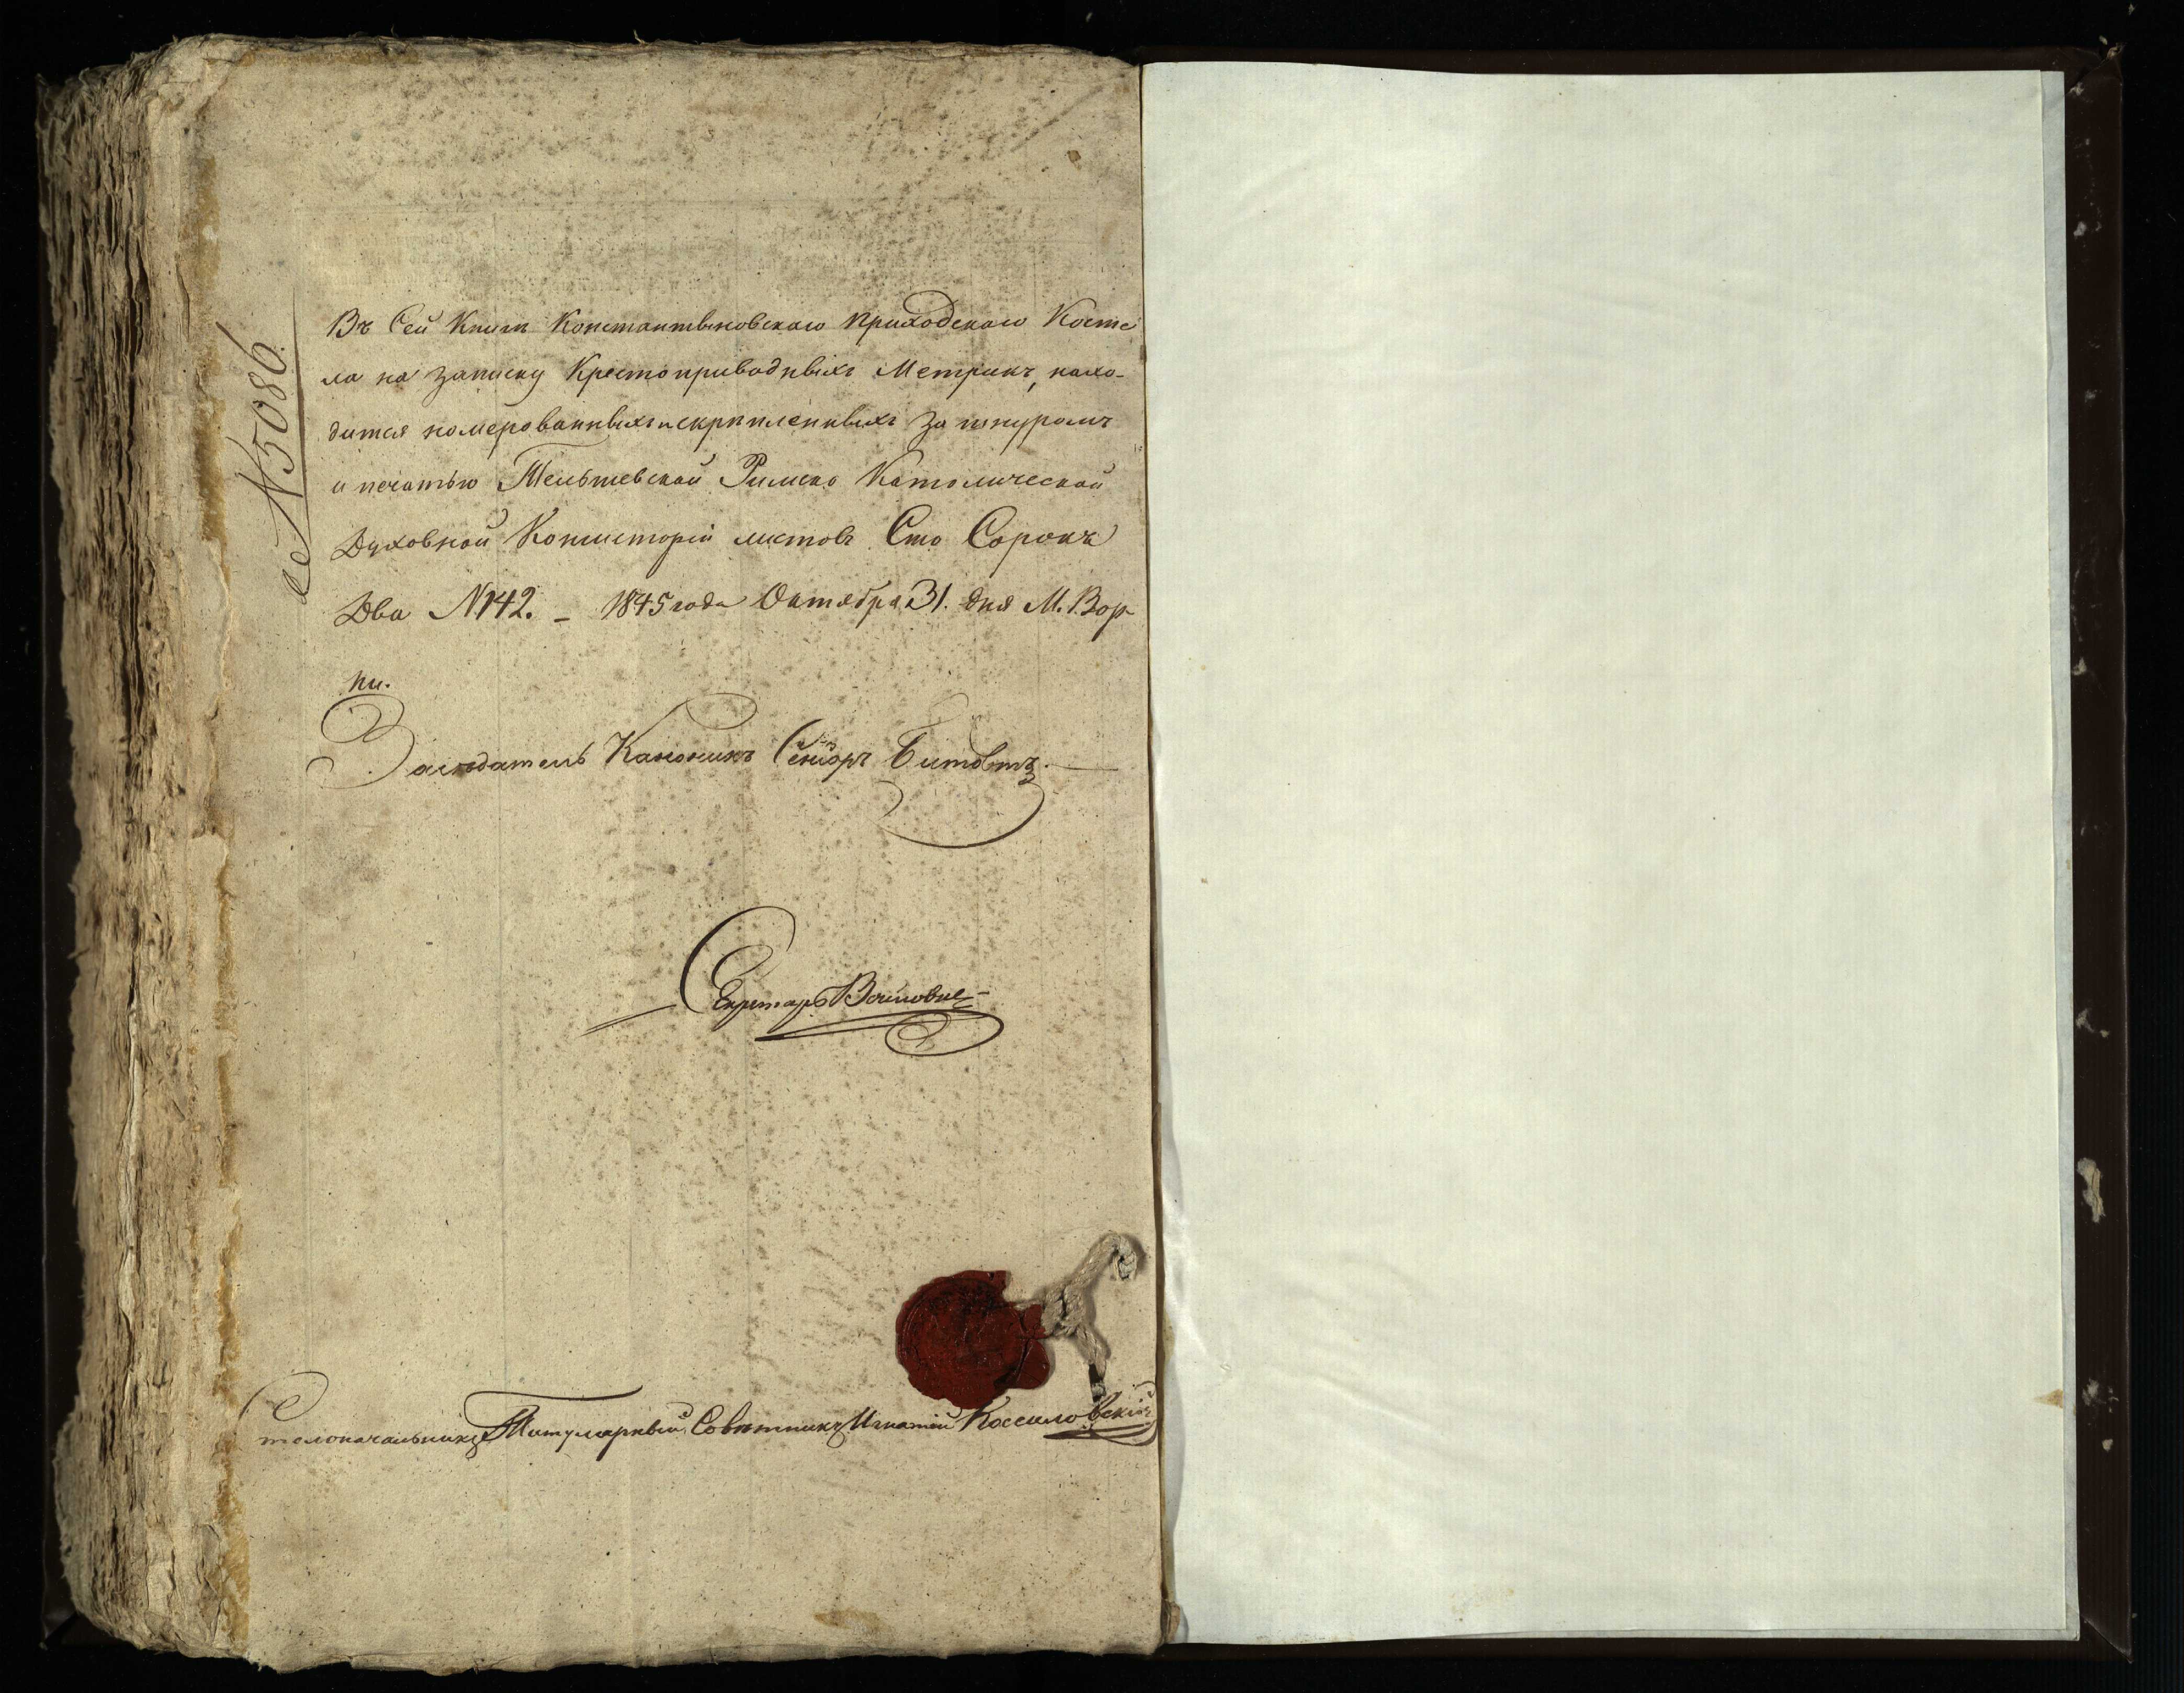 № 5086.
Въ Сей Книгѣ Константыновскаго Приходскаго Косте
ла на записку Крестоприводныхъ Метрикъ, нахо-
дится номерованныхъ и скрѣпленныхъ за шнуромъ
и печатью Тельшевской Римско Католической
Духовной Консисторіи листовъ Сто Сорокъ
Два N 142. – 1845 года Октября 31. дня М. Вор
ни.
Засѣдатель Каноникъ Сеніоръ Битовтъ.
Секретарь
Столоначальникъ Титулярный Совѣтникъ Игнатій Коссиловскій